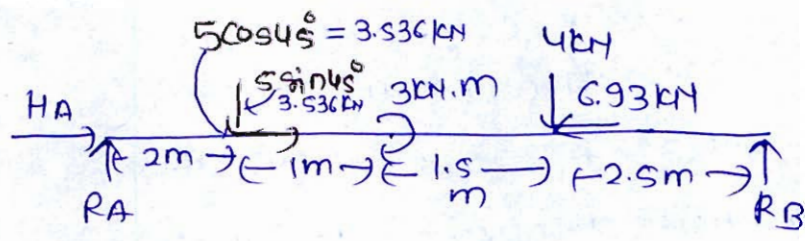 5cos45° = 3.536KN
4KN
5sin45°
3.536KN
3KN.m
6.93KN
HA
2m
1m
1.5
m
2.5m
RA
RB